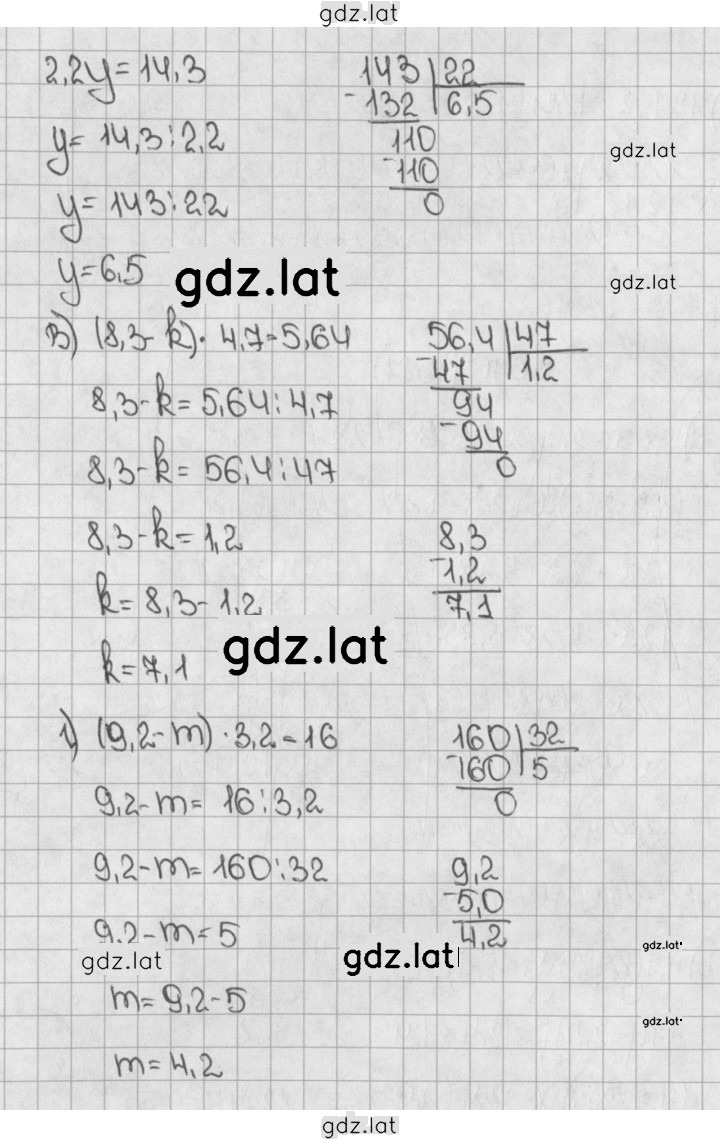 gdz.lat
2,2y = 14,3
y = 14,3 : 2,2
y = 143 : 22
y = 6,5
143 | 22
- 132 | 6,5
110
- 110
0
gdz.lat
gdz.lat
gdz.lat
в) (8,3 - k) · 4,7 = 5,64
8,3 - k = 5,64 : 4,7
8,3 - k = 56,4 : 47
8,3 - k = 1,2
k = 8,3 - 1,2
k = 7,1
56,4 | 47
- 47 | 1,2
94
- 94
0
8,3
- 1,2
7,1
gdz.lat
г) (9,2 - m) · 3,2 = 16
9,2 - m = 16 : 3,2
9,2 - m = 160 : 32
9,2 - m = 5
m = 9,2 - 5
m = 4,2
160 | 32
- 160 | 5
0
9,2
- 5,0
4,2
gdz.lat
gdz.lat
gdz.lat
gdz.lat
gdz.lat